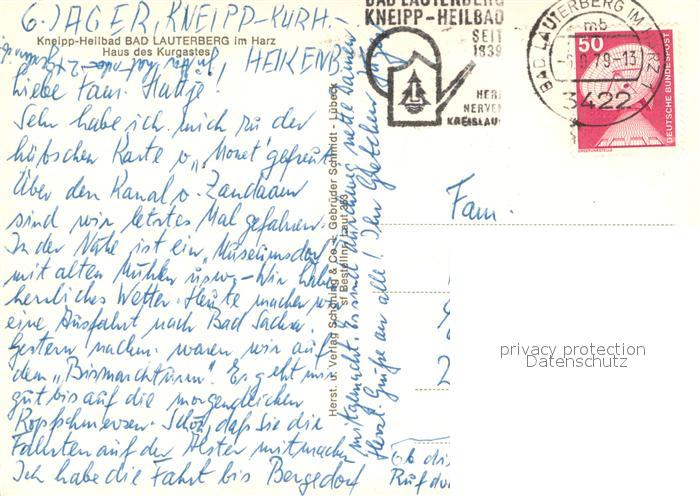 G. JÄGER, KNEIPP-KURH.-
Kneipp-Heilbad BAD LAUTERBERG im Harz
Haus des Kurgastes
HEIKENB
Liebe Fam.
Sehr habe ich mich zu der
hübschen Karte v. "Monet" gefreut
Über den Kanal v. Zandaam
sind wir letztes Mal gefahren.
In der Nähe ist ein "Museumsdorf
mit alten Mühlen usw. - Wir haben
herrliches Wetter. Heute machen wir
eine Ausfahrt nach Bad Sachsa.
Gestern nachm. waren wir auf
dem "Bismarckturm". Es geht mir
gut bis auf die morgendlichen
Kopfschmerzen. Schön, daß Sie die
Fahrten auf der Alster mitmachen
Ich habe die Fahrt bis Bergedorf
mitgemacht. Es sind durchweg nette Damen
Herzl. Grüße an alle! Ihr Gretchen
Herst. u. Verlag Schöning & Co. + Gebrüder Schmidt - Lübeck
sf Bestellnr. Laut 263
BAD LAUTERBERG
KNEIPP-HEILBAD
SEIT
1839
HERZ
NERVEN
KREISLAU
BAD LAUTERBERG IM HARZ 1
mb
79-13
3422
50
DEUTSCHE BUNDESPOST
ERDFUNKSTELLE
Fam.
privacy protection
Datenschutz
Ob die